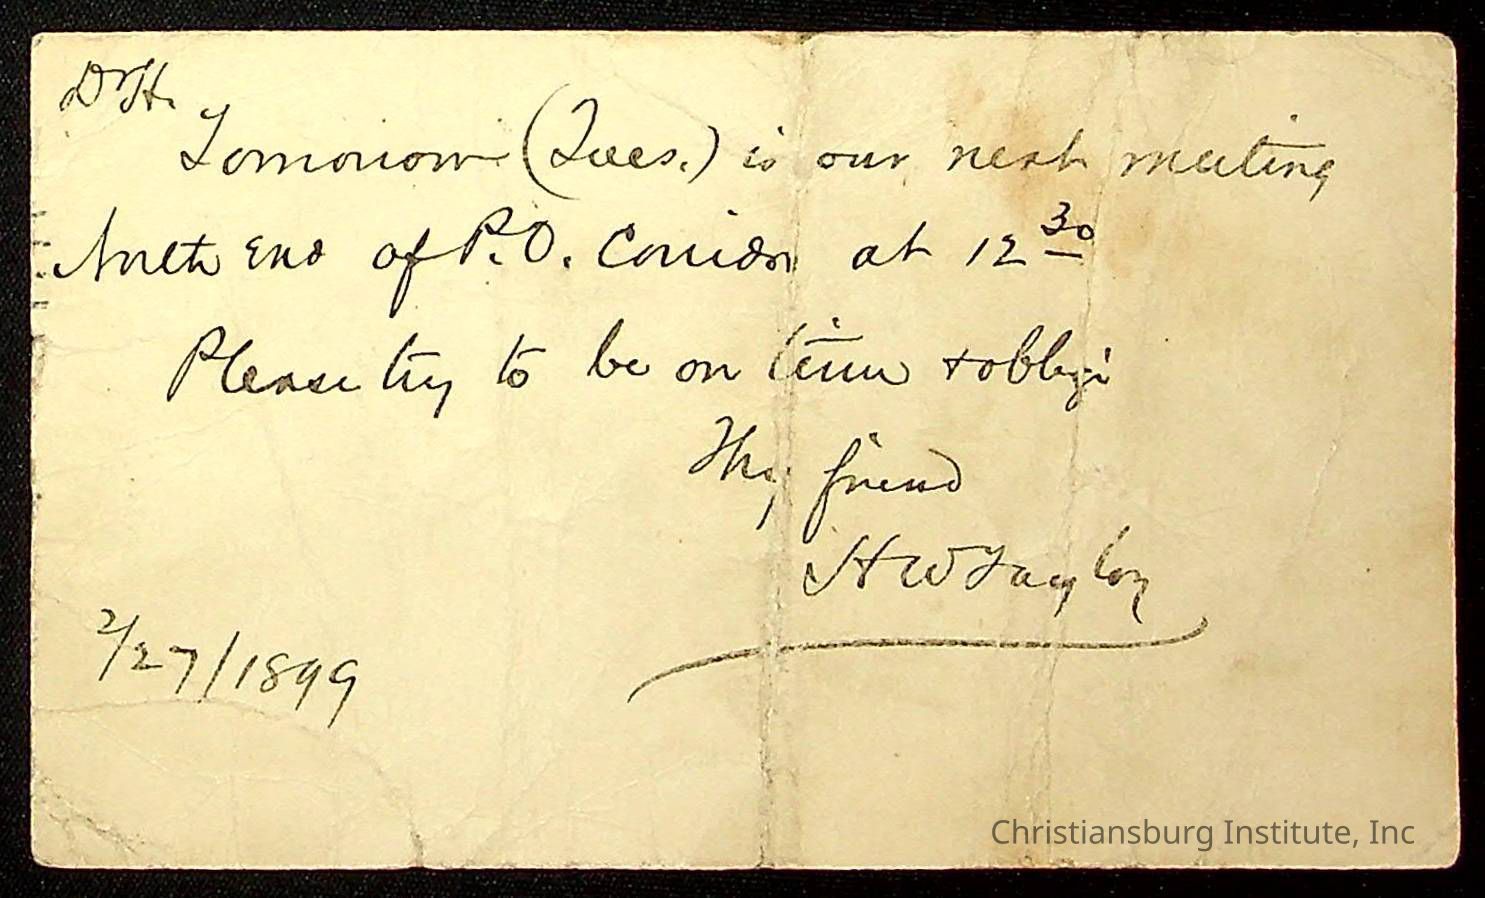 Dr H.
Tomorrow (Tues.) is our next meeting
North End of P.O. Corridor at 12 30
Please try to be on time & oblige
Thy friend
H W Taylor
2/27/1899
Christiansburg Institute, Inc